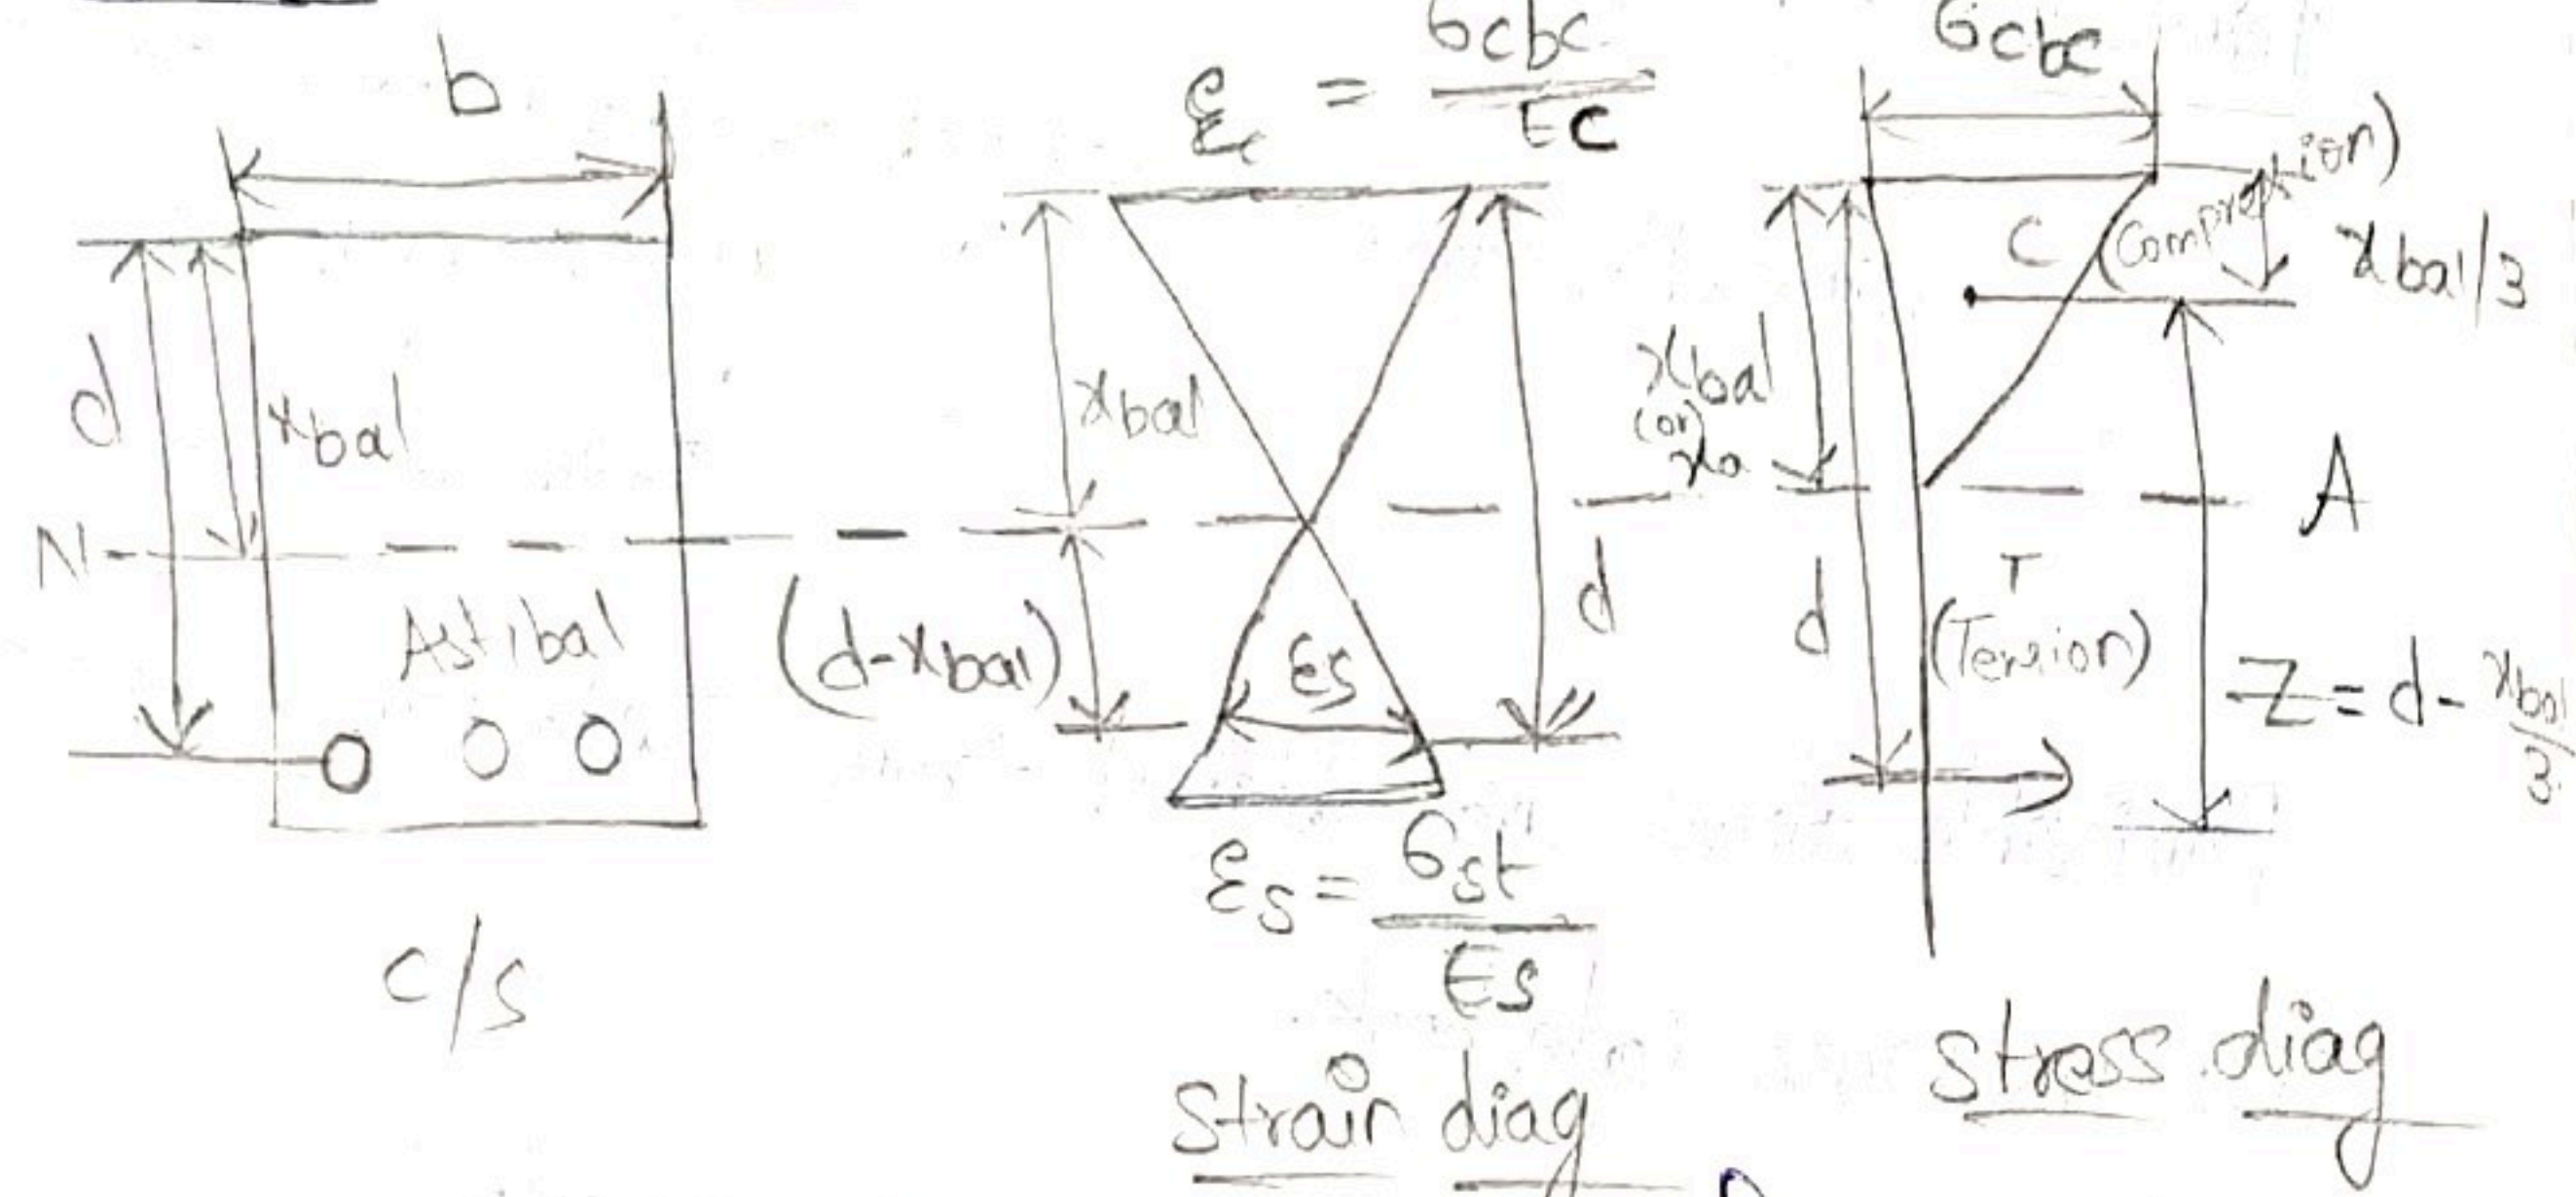 b
d
xbal
N
Ast,bal
c/s
Ec = 6cbc / Ec
xbal
(d-xbal)
d
Es
Es = 6st / Es
Strain diag
6cbc
C (Compression)
xbal/3
xbal
(or)
xa
d
T
(Tension)
A
Z = d - xbal/3
Stress diag